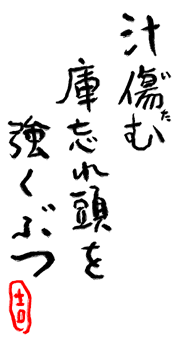 汁傷む
じた
庫忘れ頭を
強くぶつ
吉